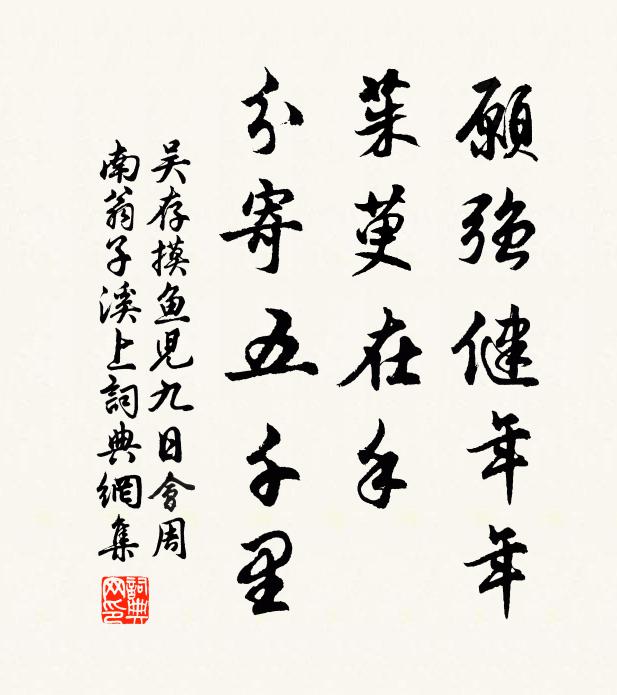 願強健年年
茱萸在手
分寄五千里
吳存摸魚児九日會周
南翁子溪上詞典網集
詞典网印